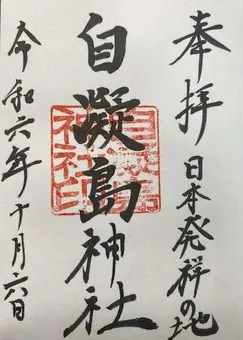 奉拝 日本発祥の地
自凝島神社
令和六年十月六日